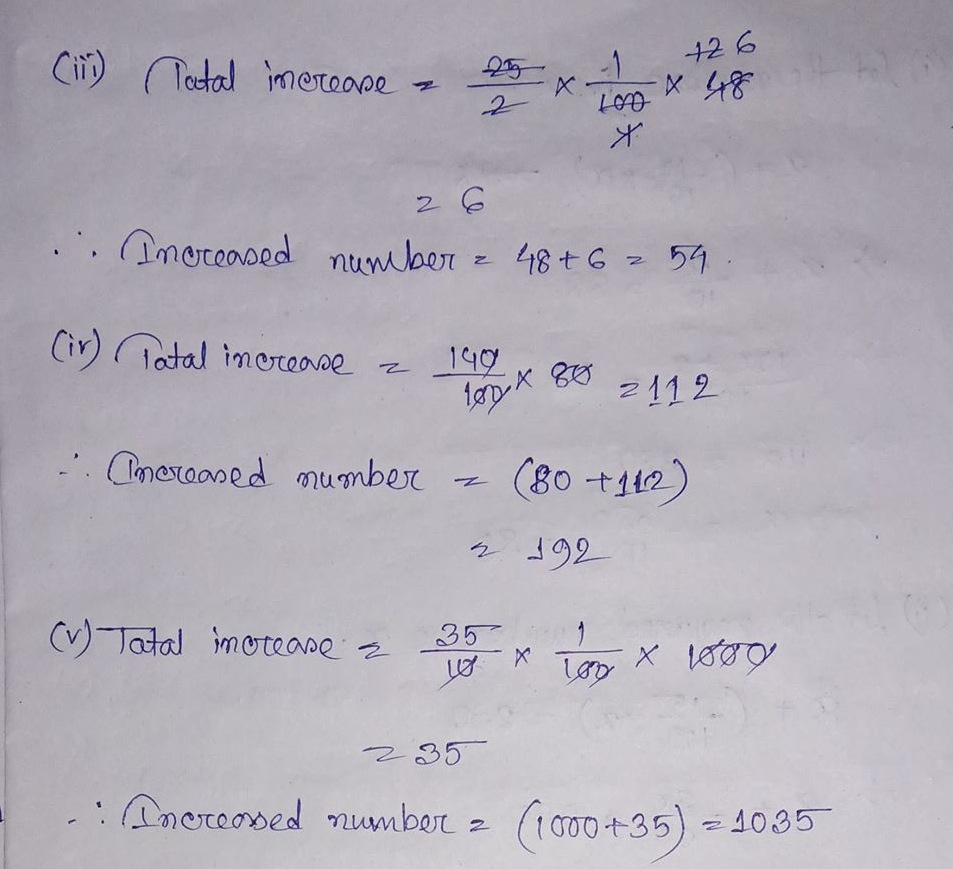 (iii) Total increase = 25/2 × 1/100 × 48 12 6
4
= 6
∴ Increased number = 48 + 6 = 54.
(iv) Total increase = 140/100 × 80 = 112
∴ Increased number = (80 + 112)
= 192
(v) Total increase = 35/10 × 1/100 × 1000
= 35
∴ Increased number = (1000 + 35) = 1035